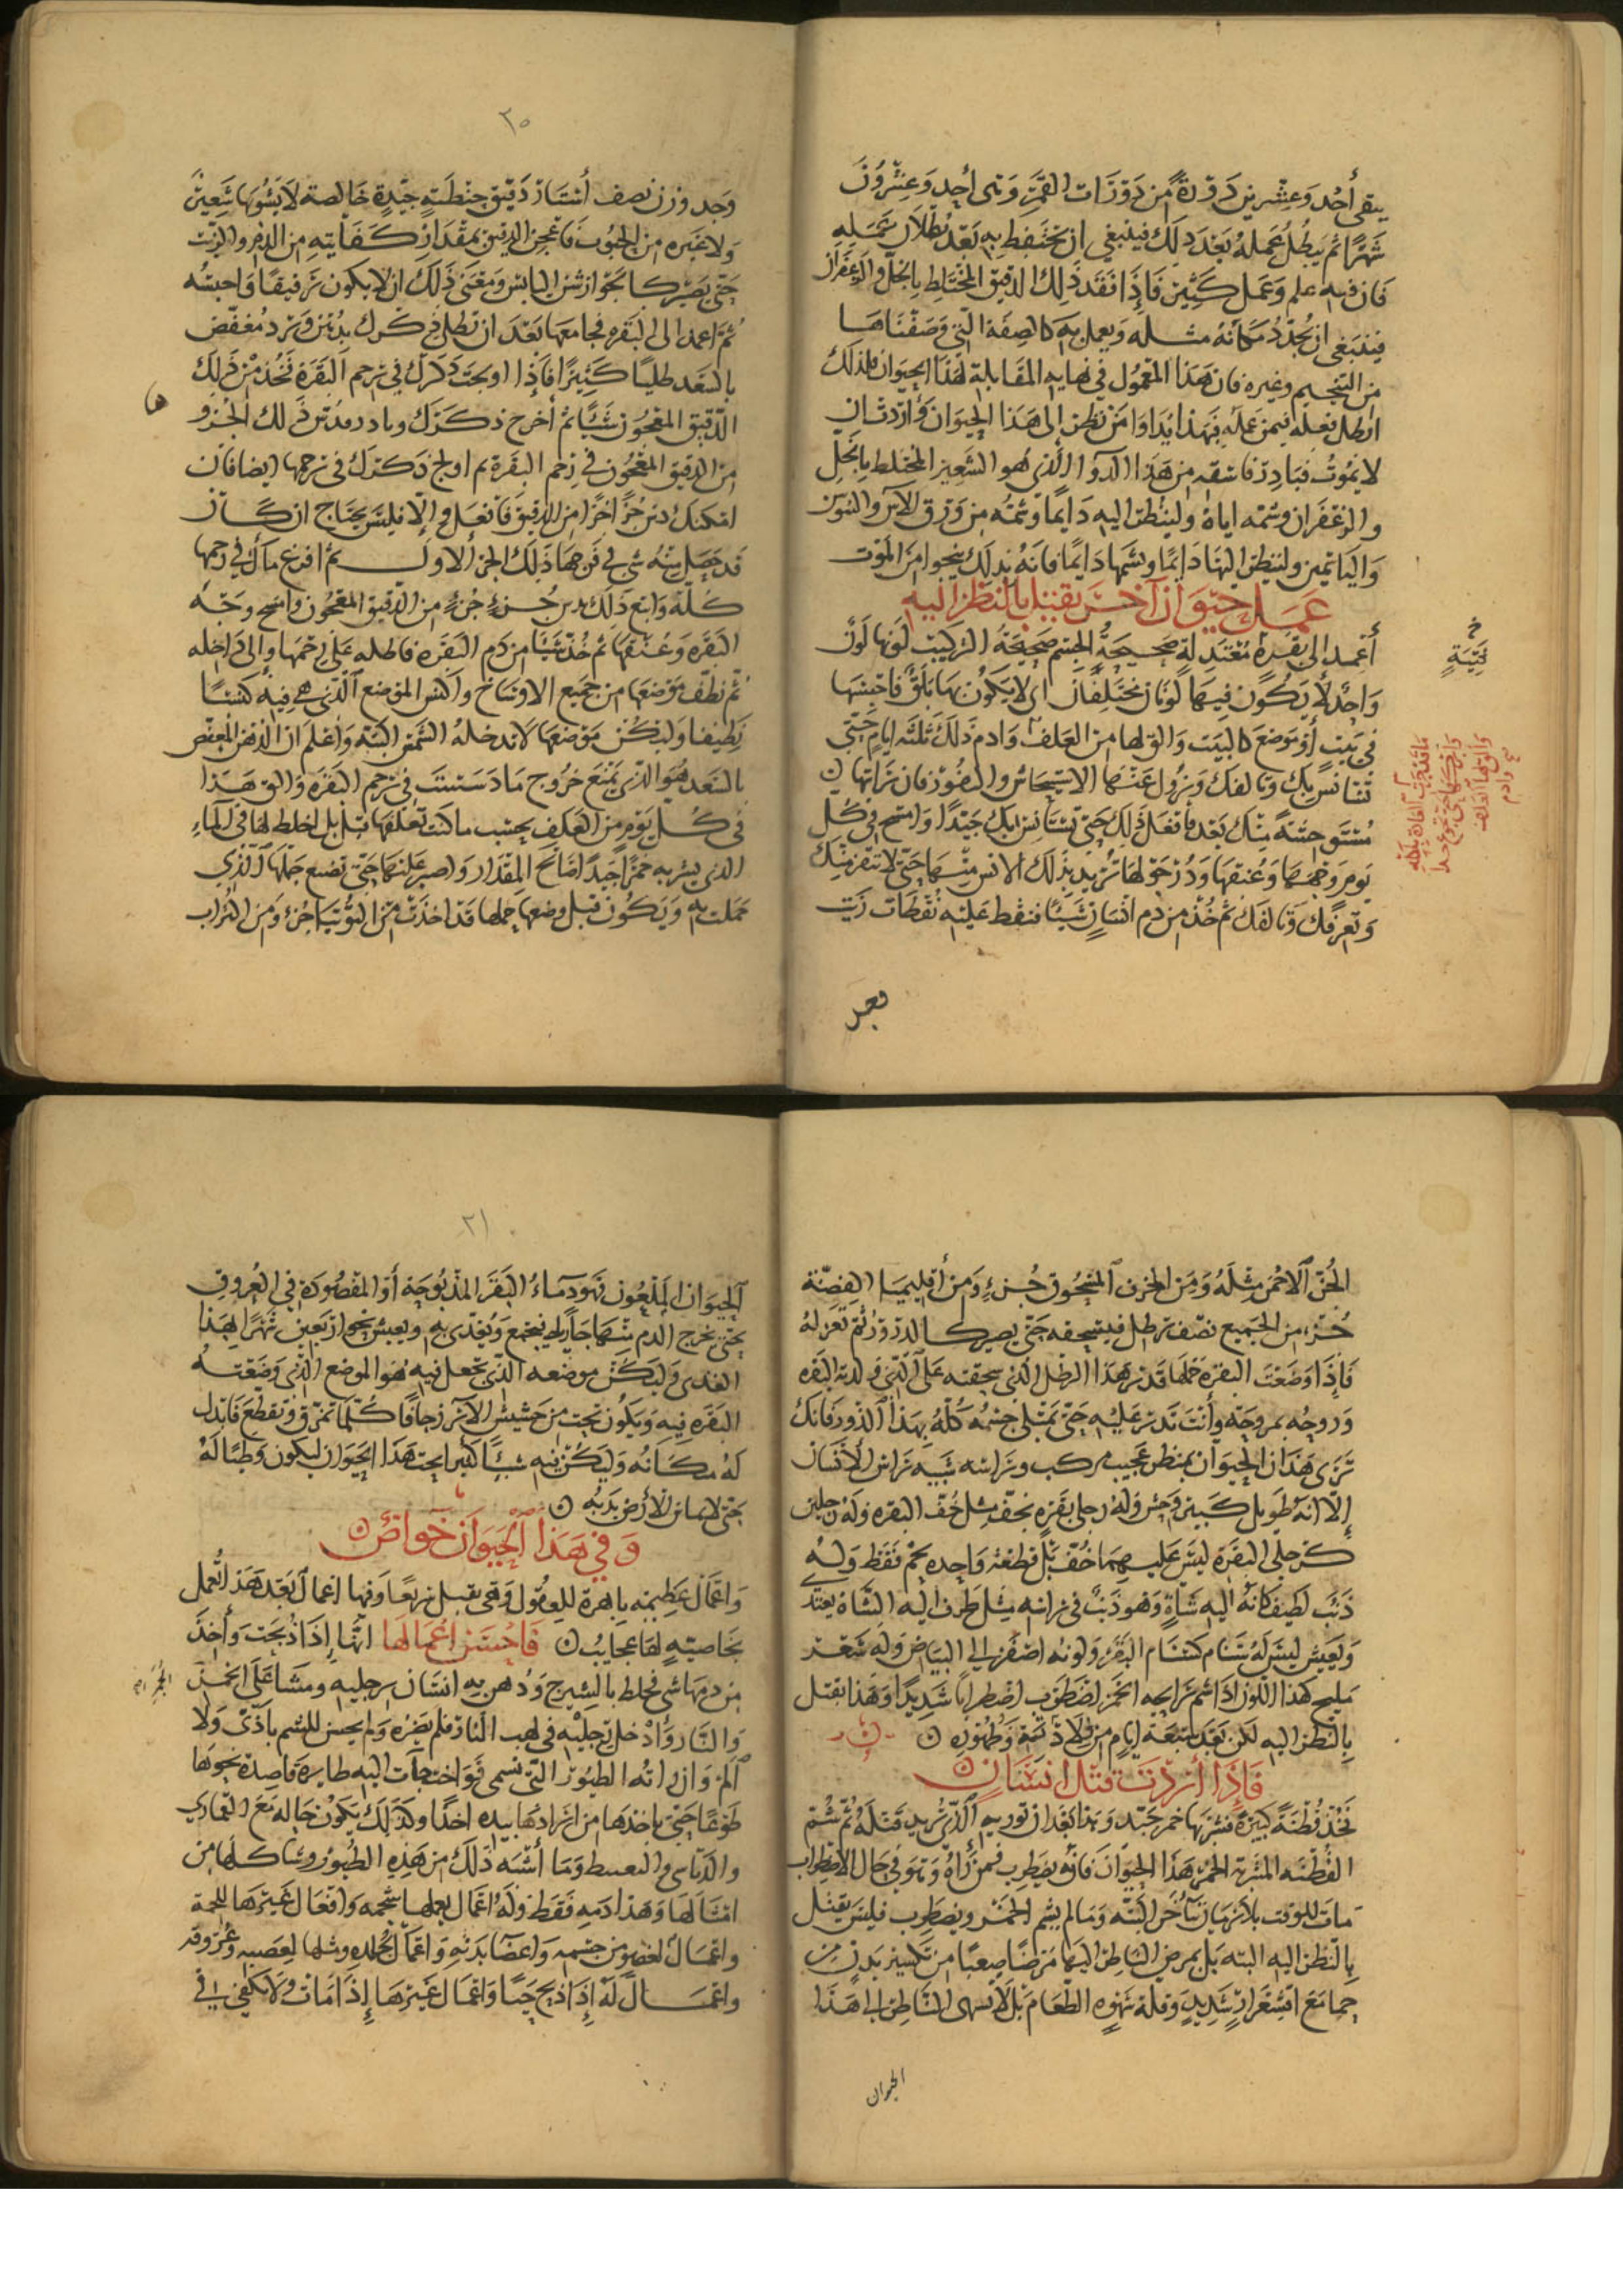 يبقى أحد وعشرين دورة من دورات القمر وهى أحد وعشرون
شهرًا ثم يبطل عمله بعد ذلك فينبغي ان يحتفظ به بعد بطلان عمله
فان فيه علم وعمل كثير فإذا فقد ذلك الدقيق المختلط بالخل والزعفران
فينبغى ان يجدد مكانه مثله ويعمل به كالصفة التي وصفناها
من التنجيم وغيره فان هذا المعمول في نهاية المقابلة لهذا الحيوان فلذلك
ابطل فعله فيمن عمله فهذا ابدا دوا من نظر إلى هذا الحيوان وأردت ان
لا يموت فبادر فاسقه من هذا الدوا الذي هو الشعير المختلط بالخل
والزعفران وشمه اياه ولينظر اليه دايمًا وشمه من ورق الآس والسوسن
والياسمين ولينظر اليها دايمًا ويشمها دايمًا فانه بذلك ينجوا من الموت
عمل حيوان آخر يقتل بالنظر اليه
أعمد إلى بقرة معتدلة صحيحة الجسم صحيحة التركيب لونها لون
واحد لا يكون فيها لونان مختلفان اى لا يكون بها بلق فاحبسها
في بيت أو موضع كالبيت والق لها من العلف وادم ذلك ثلثة ايام حتى
تستانس بك وتالفك ويزول عنها الاستيحاش والنفور فان رايتها
مستوحشة منك بعد فافعل ذلك حتى تستأنس بك جيدًا وامسح في كل
يوم وجهها وعنقها ودر حولها تريد بذلك الانس منها حتى لا تنفر منك
وتعرفك وتالفك ثم خذ من دم انسان شيئًا فنقط عليه نقطات زيت
فتية
فعجن
٢٠
وجد وزن نصف أستار دقيق حنطة جيدة خالصة لا يشوبها شعير
ولا غيره من الحبوب فاعجن الدقيق بمقدار كفايته من الدم والزيت
حتى يصير كالجوارشن اليابس ومعنى ذلك ان لا يكون رقيقًا واحبسه
ثم اعمد الى البقره فجامعها بعد ان تطلى ذكرك بدهن ورد مغفص
بالسعد طليًا كثيرًا فإذا اولجت ذكرك في رحم البقرة فخذ من ذلك
الدقيق المعجون شيئًا ثم أخرج ذكرك وبادر فدس ذلك الجزو
من الدقيق المعجون في رحم البقرة ثم اولج ذكرك في رحمها ايضا فان
امكنك دس جزء آخر من الدقيق فافعل والا فليس يحتاج ان كان
قد حصل منه شي في فرجها ذلك الجزء الاول ثم افرغ مآك في رحمها
كله واتبع ذلك بدس جزء جزء من الدقيق المعجون وامسح وجه
البقره وعنقها ثم خذ شيئًا من دم البقره فاطله على رحمها والى داخله
ثم نظف موضعها من جميع الاوساخ واكنس الموضع الذى هي فيه كنسًا
نظيفا وليكن موضعها لا تدخله الشمس البتة واعلم ان الدهن المعفص
بالسعد هو الذى يمنع خروج ما دسست في رحم البقره والق هذا
في كل يوم من العلف بحسب ما كنت تعلفها قبل بل اخلط لها في الماء
الذى يشربه خمرًا جيدًا صالح المقدار واصبر عليها حتى تضع حملها الذي
حملت به ويكون قبل وضعها حملها قد اخذت من التوتيا جزء ومن التراب
الحر الاحمر مثله ومن الخزف المسحوق جزء ومن أقليميا الفضة
جزء من الجميع نصف رطل فيسحقه حتى يصير كالذرور ثم تعزله
فإذا وضعت البقرة حملها فذر هذا الرطل الذى سحقته على الذي ولدته البقره
وروحه بمروحة وأنت تذر عليه حتى يمتلى جسمه كله بهذا الذرور فانك
ترى هذا الحيوان بمنظر عجيب مركب وراسه شبيه براس الانسان
إلا انه طويل كبير وحش وله رجل بقرة بخف مثل خف البقره وله رجلين
كرجلي البقرة ليس عليهما خف بل قطعة واحده لحم فقط وله
ذنب لطيف كانه الية شاة وهو ذنب في راسه مثل طرف الية الشاة يعتد
ويعيش ليس له سنام كسنام البقر ولونه اصفر الى البياض وله شعر
مليح كهذا اللون اذا شم رايحة الخمر اضطرب اضطرابًا شديدًا وهذا يقتل
بالنظر اليه لكن بعد سبعة ايام من ولادته وظهوره
فإذا أردت قتل انسان
فخذ قطنة كبيرة فشربها خمر جيد وهذا بعد ان توريه الذي تريد قتله ثم شم
القطنة المشربة الخمر هذا الحيوان فانه يضطرب فمن رآه وهو في حال الاضطراب
مات للوقت بلا زمان يتأخر البتة وما لم يشم الخمر ويضطرب فليس يقتل
بالنظر اليه البته بل يمرض الناظر اليه مرضًا صعبًا من تكسير بدن من
حما مع اقشعرار شديد وقلة شهوه الطعام بل لا تسهى الناظر الى هذا
الحيوان
٢١
الحيوان الملعون فهو دماء البقر المذبوحة أو المقصودة في العروق
حتى يخرج الدم منها جارا يجمع ويغذى به ويعيش نحو اربعين شهرًا لهذا
الغدى وليكن موضعه الذي تجعل فيه هو الموضع الذي وضعته
البقرة فيه ويكون تحته من حشيش الآس زجافا كلما تمزق وتقطع فابدل
له مكانه وليكن فيه شيئًا كثيرا تحت هذا الحيوان ليكون وطئا له
حتى لا يماس الأرض بدنه
وفي هذا الحيوان خواص
واعمال عظيمة باهرة للعقول وهى تقبل سريعًا وفيها اعمال بعد هذا تعمل
بخاصية لها عجايب فاحسن اعمالها انها إذا ذبحت وأخذ
من دمها شى فخلط بالشيرج ودهن به انسان رجليه ومشا على الجمر
والنار وأدخل رجليه في لهب النار فلم يضره ولم يحس للشم باذى ولا
ألم وان راته الطيور التى تسمى فواخت جات اليه طايرة قاصدة نحوها
طوعًا حتى ياخذها من ارادها بيده اخذا وكذلك يكون حاله مع القماري
والدباسى والبعبط وما أشبه ذلك من هذه الطيور وشاكلها من
امثالها وهذا دمه فقط وله اعمال يعملها شحمه وافعال غيرها للحمة
واعمال لعضو من جسمه واعضا بدنه واعمال لجلده ومثلها لعصبه وعروقه
واعمال له إذا ذبح حيًا واعمال غيرها إذا مات ولا يكفي في